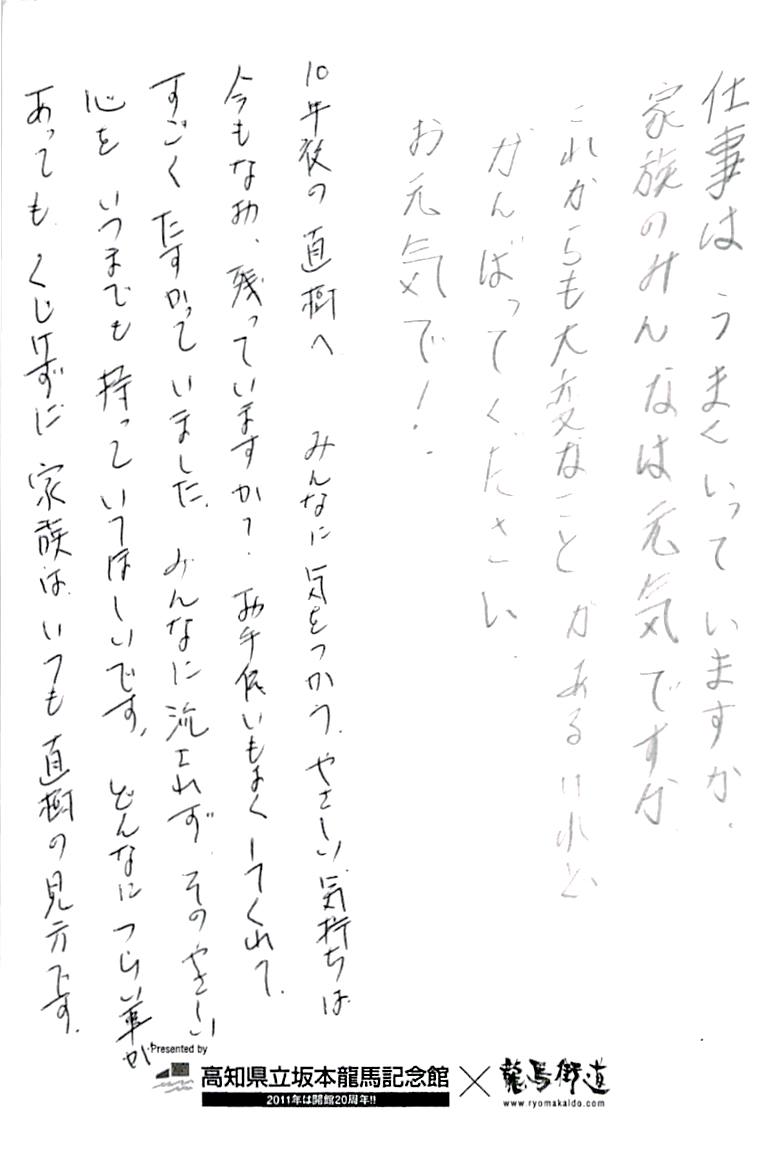 仕事は うまくいって いますか.
家族のみんなは元気ですか.
これからも大変なこと があるけれど
がんばってください.
お元気で!.
10年後の 直樹へ みんなに気をつかう、やさしい気持ちは
今もなお、残っていますか? お手伝いもよくしてくれて、
すごく たすかって いました、みんなに 流されず、そのやさしい
心を いつまでも 持っていてほしいです、どんなに つらい事が
あっても、くじけずに 家族は、いつも 直樹の見方です.
Presented by
高知県立坂本龍馬記念館 × 龍馬街道
2011年は開館20周年!!
www.ryomakaido.com